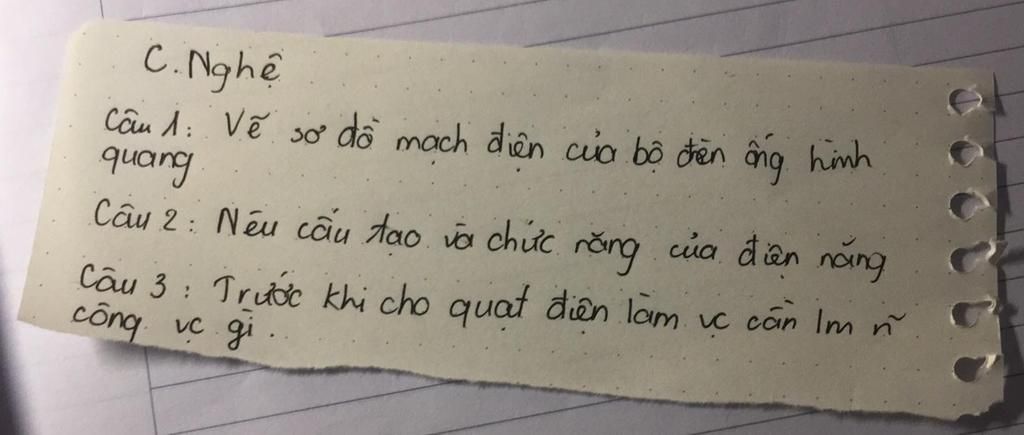 C. Nghệ
Câu 1: Vẽ sơ đồ mạch điện của bộ đèn ống hình
quang
Câu 2: Nêu cấu tạo và chức năng của điện năng
Câu 3: Trước khi cho quạt điện làm vc cần lm n~
công vc gì.